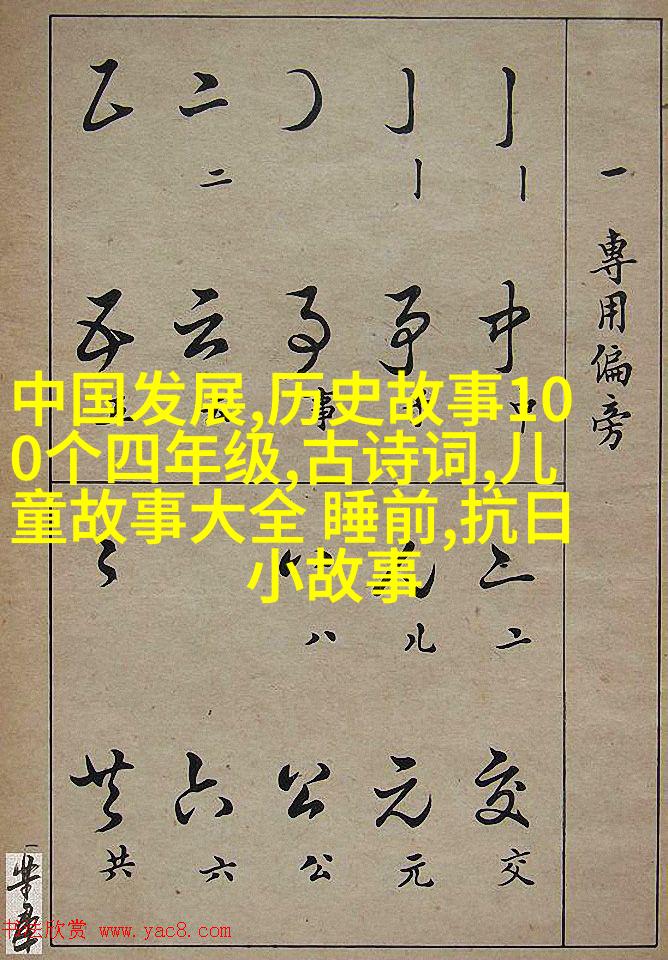 一 專用偏旁
中
中
事
二
二
云
五
中国发展,历史故事10
0个四年级,古诗词,儿
童故事大全 睡前,抗日
小故事
交
交
儿
元
元
八
公
公
六
六
共
共
书法欣赏 www.yac8.com